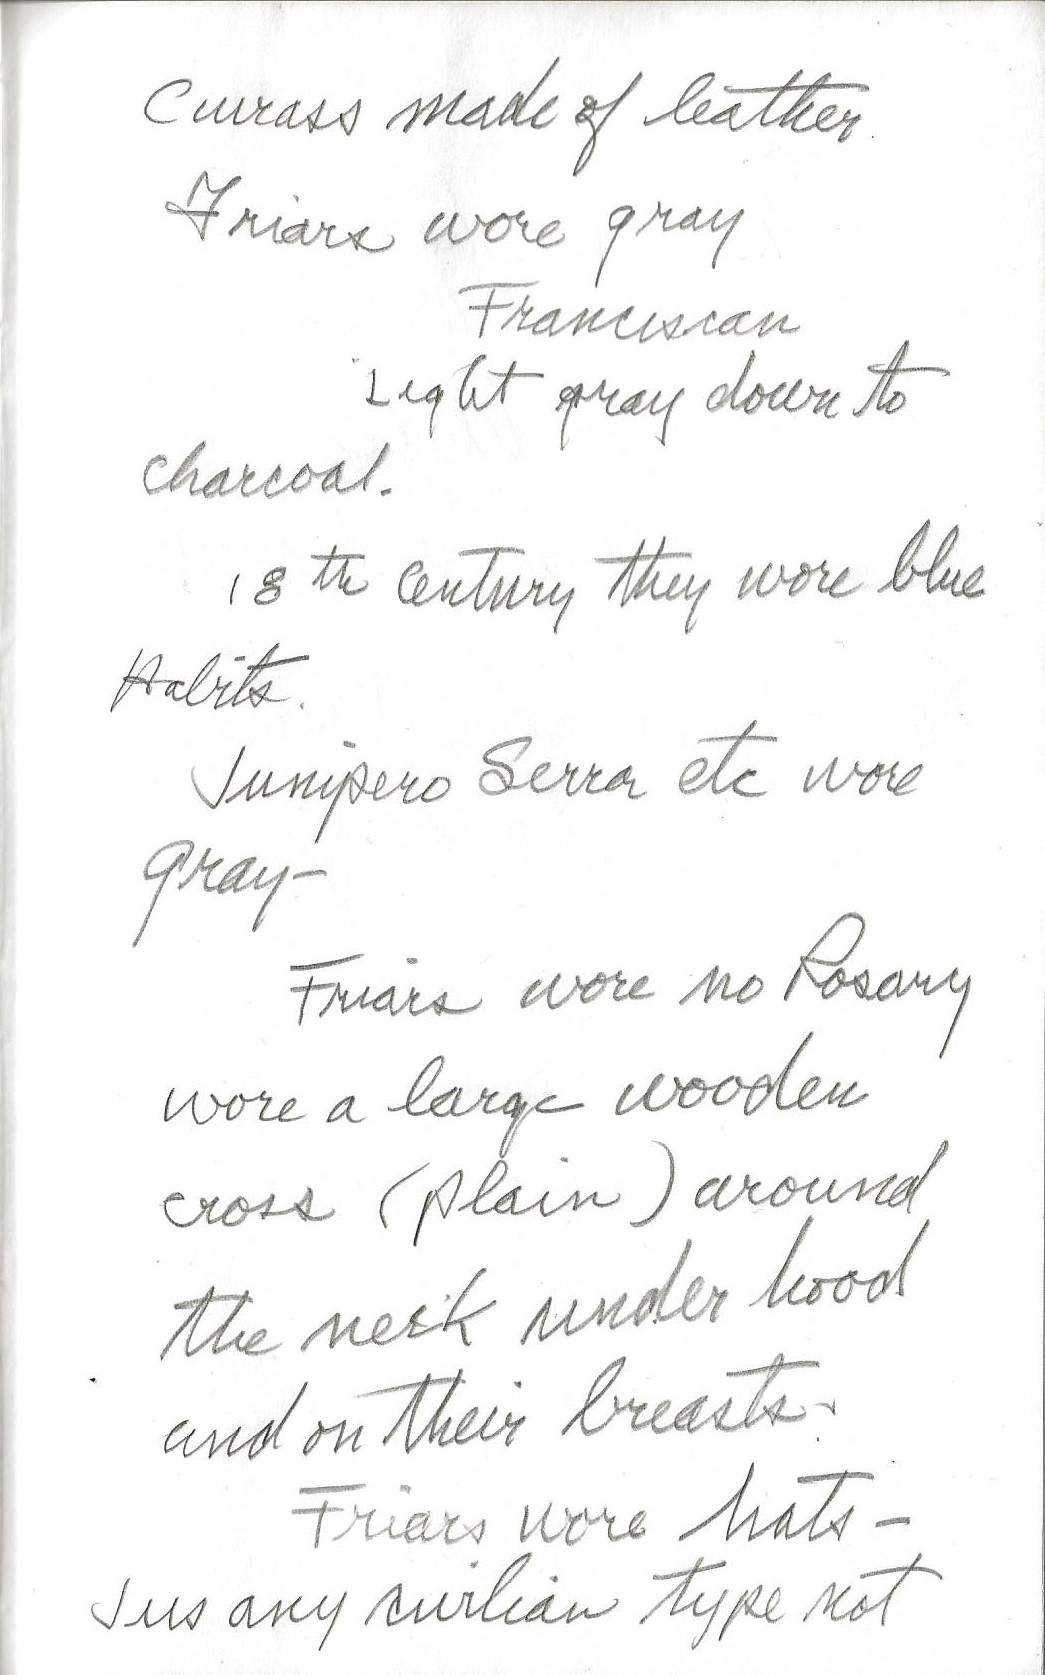 Cuirass made of leather.
Friars wore gray
Franciscan
Light gray down to
charcoal.
18th Century they wore blue
Habits.
Junipero Serra etc wore
gray-
Friars wore no Rosary
wore a large wooden
cross (plain) around
the neck under hood
and on their breasts.
Friars wore hats -
Jus any civilian type not